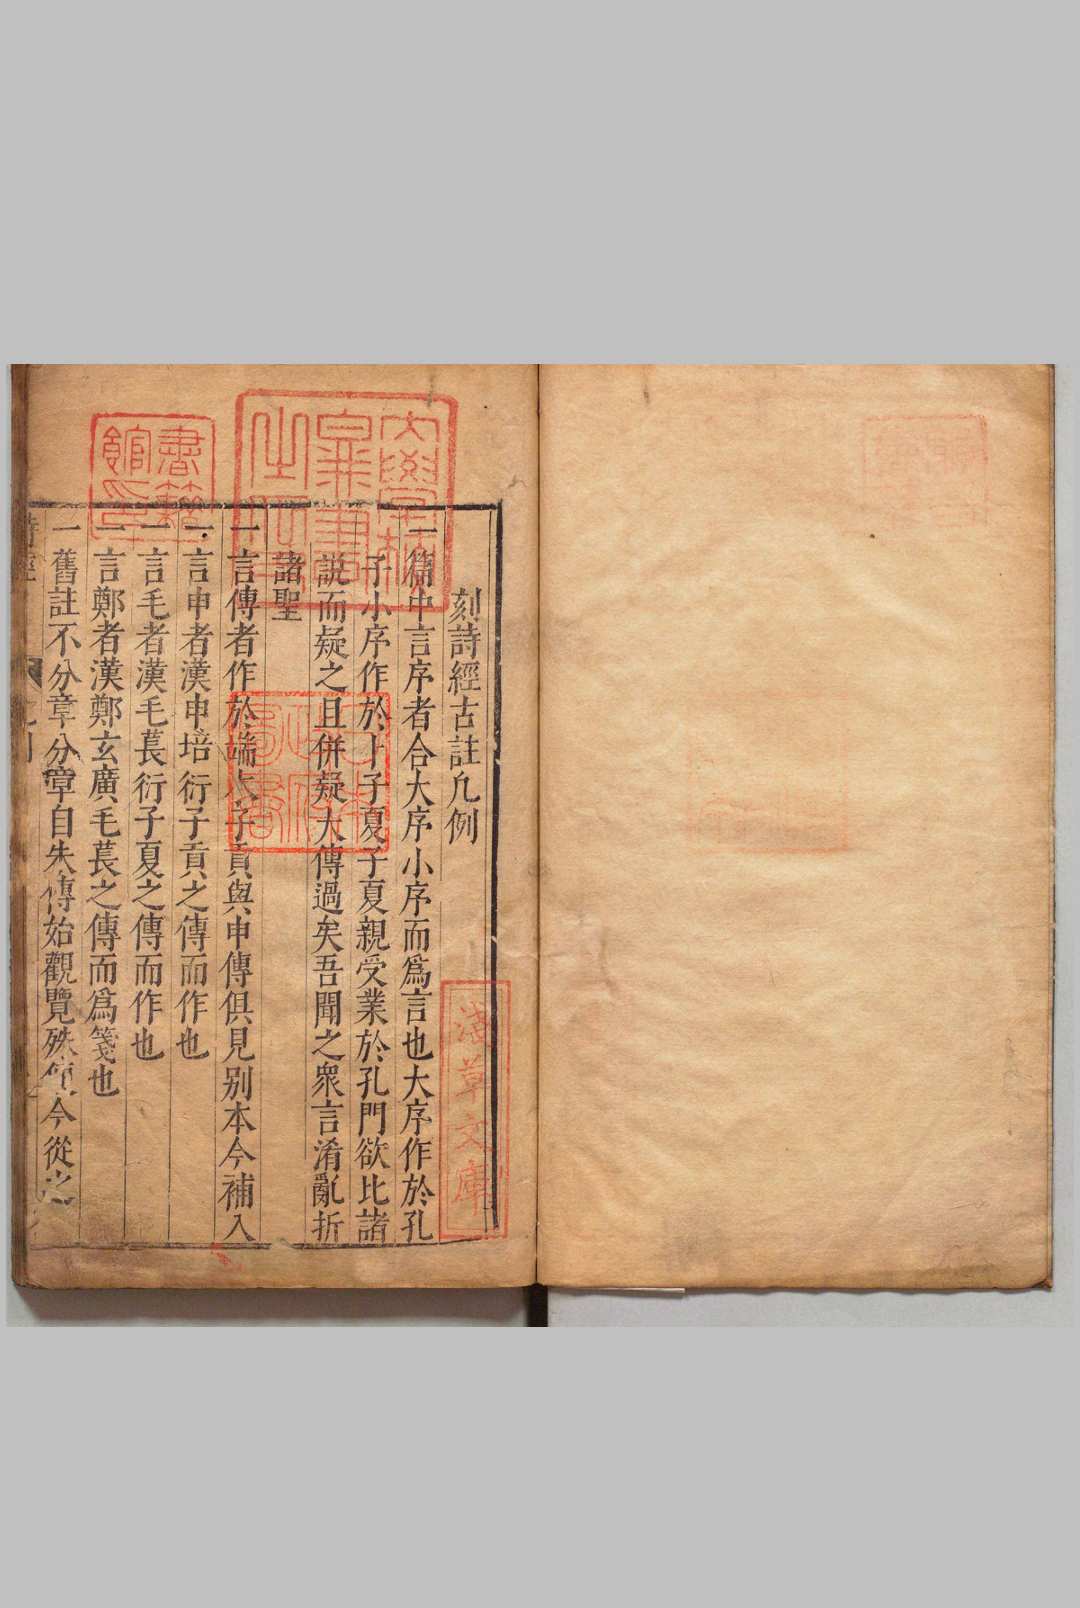 刻詩經古註凡例
一篇中言序者合大序小序而爲言也大序作於孔
子小序作於卜子夏子夏親受業於孔門欲比諸
説而疑之且併疑大傳過矣吾聞之衆言淆亂折
諸聖
一言傳者作於端木子貢與申傳俱見别本今補入
一言申者漢申培衍子貢之傳而作也
一言毛者漢毛萇衍子夏之傳而作也
一言鄭者漢鄭玄廣毛萇之傳而爲箋也
一舊註不分章分章自朱傳始觀覽殊便今從之
詩經
凡例
淺草文庫
書籍
館印